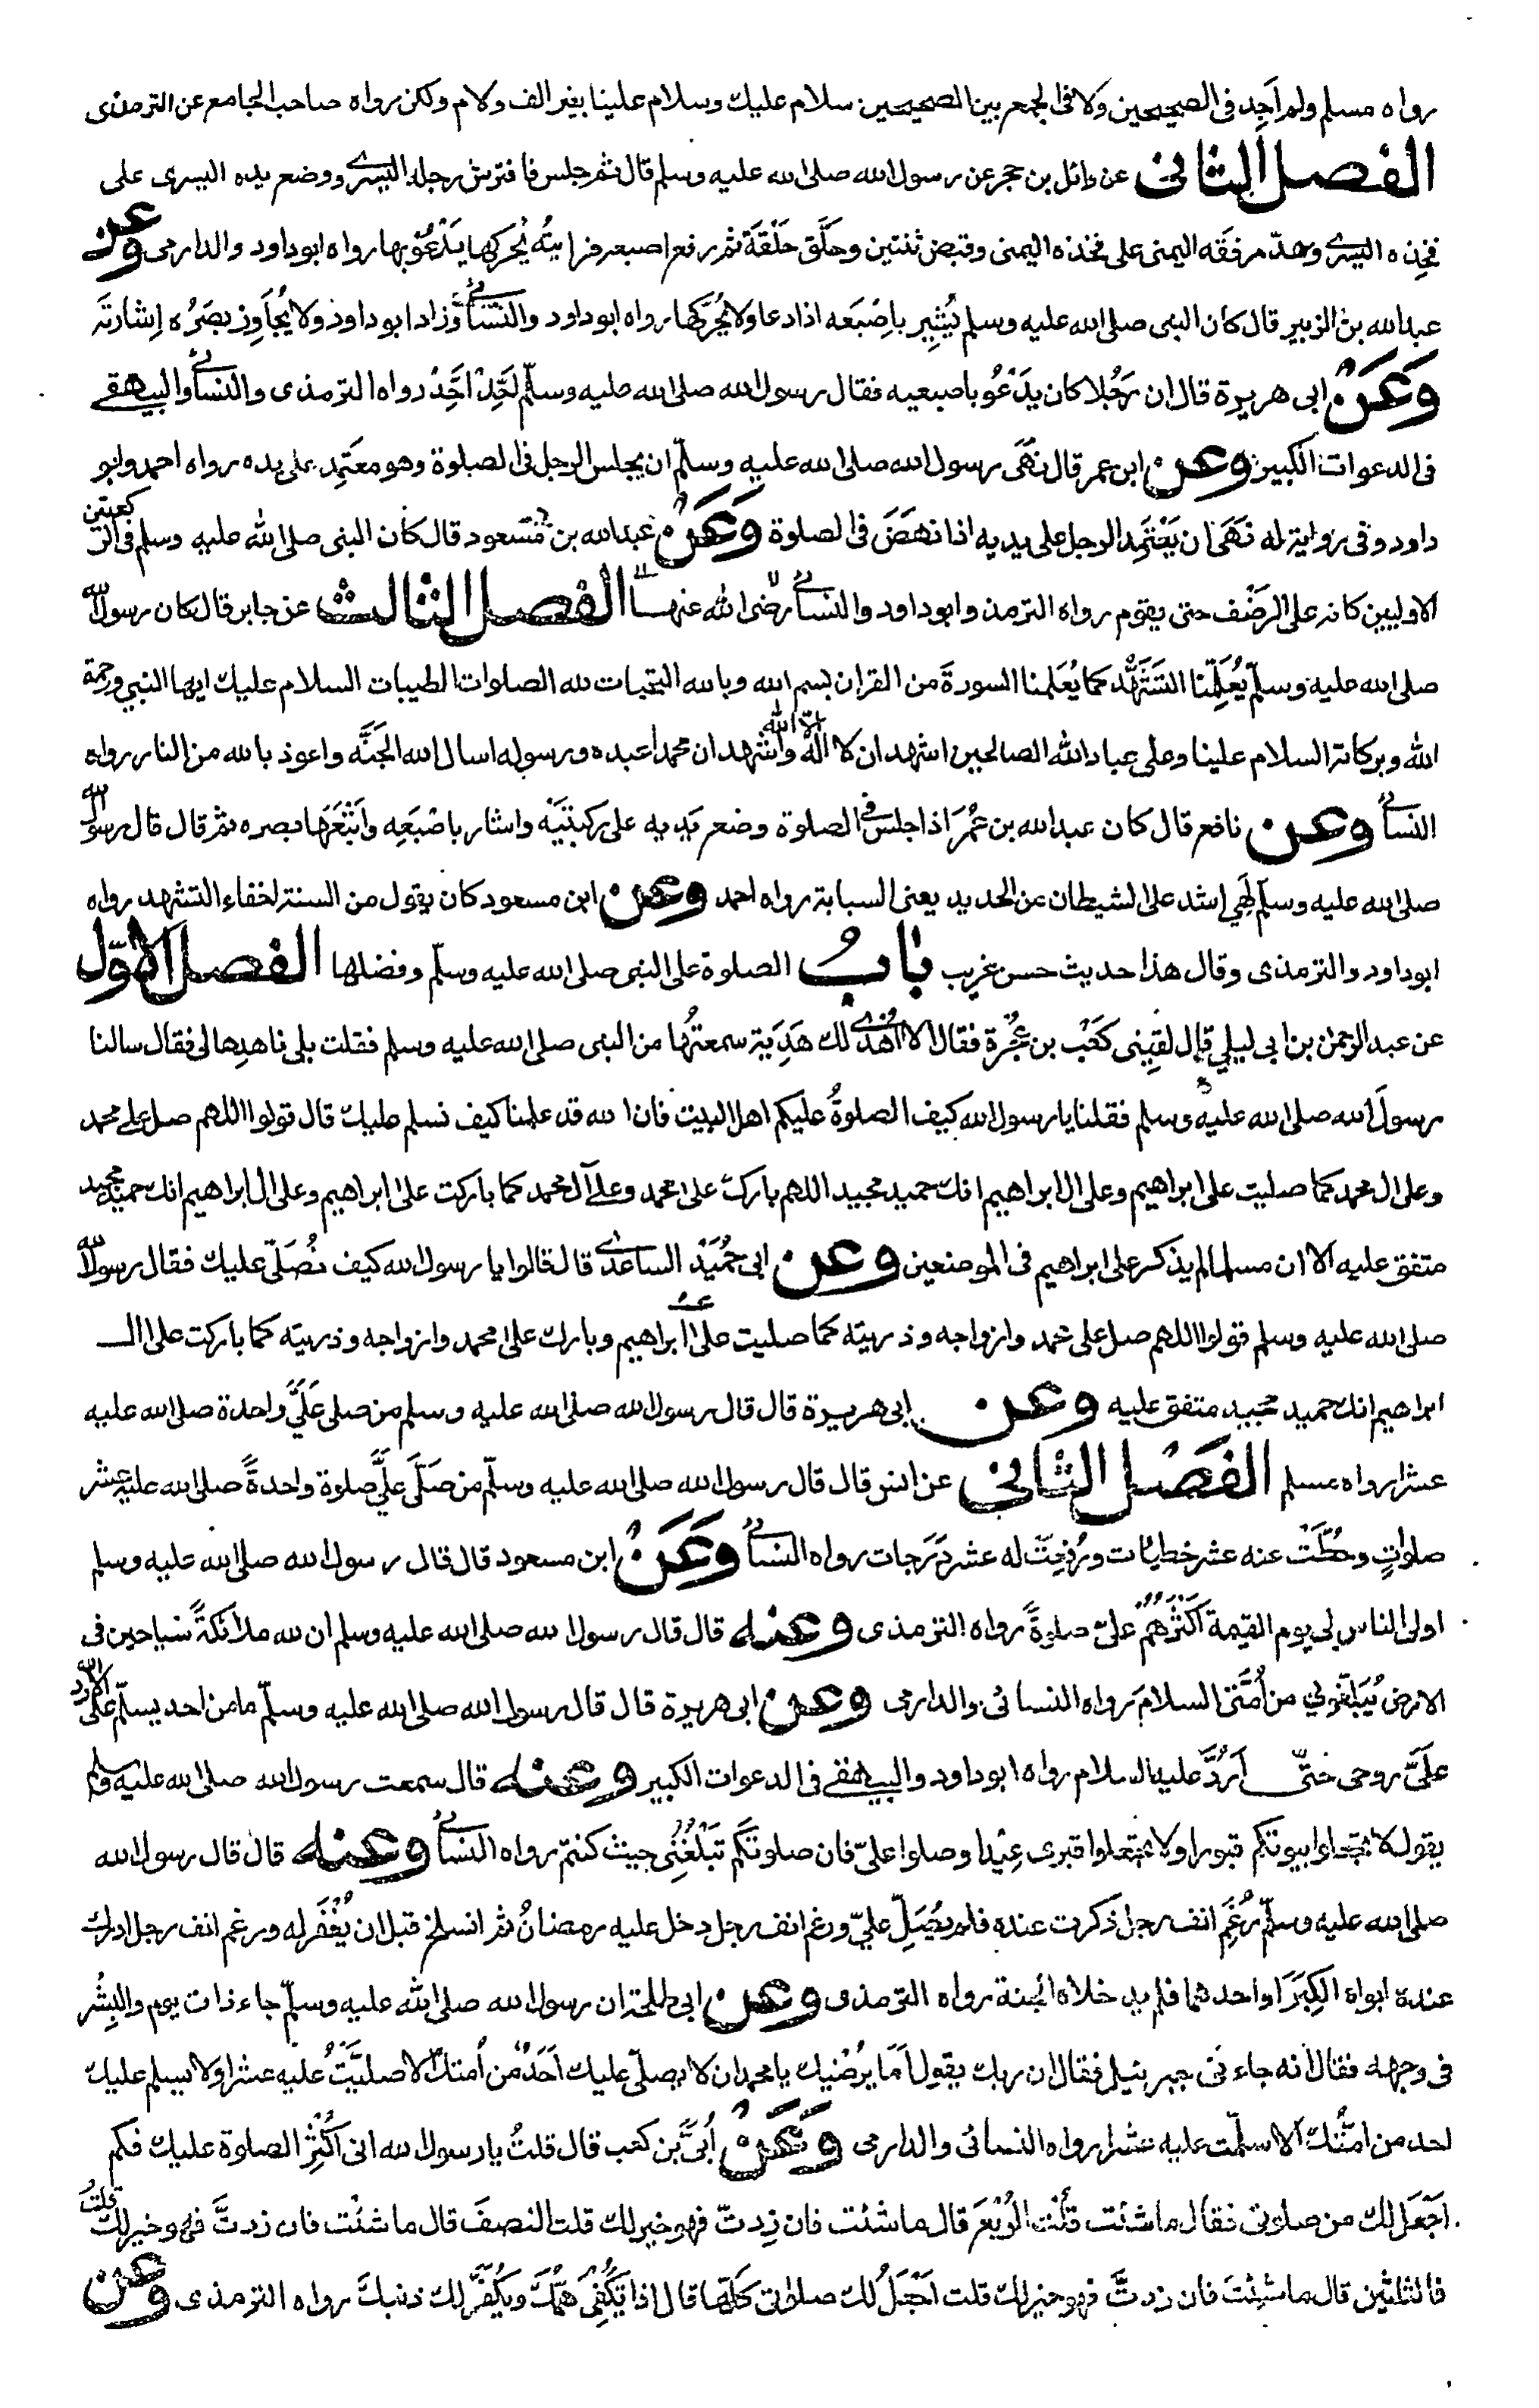 رواه مسلم ولم اَجِد فى الصحيحين ولا فى الجمع بين الصحيحين سلام عليك وسلام علينا بغير الف ولام ولكن رواه صاحب الجامع عن الترمذى
الفصل الثانى عن وائل بن حجر عن رسول الله صلى الله عليه وسلم قال ثم جلس فافترش رجله اليسرے ووضع يده اليسرى على
فخِذه اليسرے وحدّ مرفقَه اليمنى على فخذه اليمنى وقبض ثنتين وحلَّق حَلْقَة ثم رفع اصبعه فرايتُه يُحركها يَدْعُوْ بها رواه ابوداود والدارمى وعن
عبدالله بن الزبير قال كان النبى صلى الله عليه وسلم يُشِير باِصْبَعه اذا دعا ولا يُحرّكُها رواه ابوداود والنسائے وزاد ابوداود ولا يُجاوِز بصَرُه اِشارتَه
وَعَنْ ابى هريرة قال ان رَجُلا كان يَدْعُو باصبعيه فقال رسول الله صلى الله عليه وسلّم اَحِّدْ اَحِّدْ رواه الترمذى والنسائے والبيهقے
فى الدعوات الكبير وعن ابن عمر قال نَهَى رسول الله صلى الله عليه وسلّم ان يجلس الرجل فى الصلوة وهو معتمِد على يده رواه احمد وابو
داود وفى رواية له نَهَى ان يَعْتَمِد الرجل على يديه اذا نهَضَ فى الصلوة وَعَنْ عبدالله بن مَسْعود قال كان النبى صلى الله عليه وسلم فى الركعتين
الاوليين كانه على الرَضْف حتى يقوم رواه الترمذ وابوداود والنسائے رضى الله عنهما الفصل الثالث عن جابر قال كان رسول الله
صلى الله عليه وسلّم يُعَلِّمنا التَشَهُّد كما يُعَلمنا السورةَ من القران بسم الله وبالله التحيات لله الصلوات الطيبات السلام عليك ايها النبى ورحمة
الله وبركاته السلام علينا وعلى عباد الله الصالحين اشهد ان لا اله الا الله واشهد ان محمدا عبده ورسوله اسال الله الجنَّة واعوذ بالله من النار رواه
النسائے وعن نافع قال كان عبد الله بن عُمَرَ اذا جلس فى الصلوة وضع يديه على ركبتيْه واشار باصْبَعِه واَتْبَعَهَا بصره ثم قال قال رسول الله
صلى الله عليه وسلّم لَهِى اشد على الشيطان من الحديد يعنى السبابة رواه احمد وعن ابن مسعود كان يقول من السنة اخفاء التشهد رواه
ابوداود والترمذى وقال هذا حديث حسن غريب بابُ الصلوة على النبى صلى الله عليه وسلّم وفضلها الفصل الاوّل
عن عبد الرحمن بن ابى ليلى قال لقِيَنى كَعْب بن عُجْرة فقال الا اُهْدے لك هَدِيّة سمعتُها من النبى صلى الله عليه وسلم فقلت بلى فاهدِها لى فقال سالنا
رسولَ الله صلى الله عليه وسلم فقلنا يا رسول الله كيف الصلوةُ عليكم اهل البيت فان الله قد علمنا كيف نسلم عليك قال قولوا اللهم صل على محمد
وعلى ال محمد كما صليت على ابراهيم وعلى ال ابراهيم انك حميد مجيد اللهم بارك على محمد وعلى آل محمد كما باركت على ابراهيم وعلى ال ابراهيم انك حميد مجيد
متفق عليه الا ان مسلما لم يذكر على ابراهيم فى الموضعين وعن ابى حُمَيْد الساعدے قال قالوا يا رسول الله كيف نُصَلّى عليك فقال رسول الله
صلى الله عليه وسلم قولوا اللهم صل على محمد وازواجه وذريته كما صليت على ال ابراهيم وبارك على محمد وازواجه وذريته كما باركت على ال
ابراهيم انك حميد مجيد متفق عليه وعن ابى هريرة قال قال رسول الله صلى الله عليه وسلم من صلى عَلَيَّ واحدة صلى الله عليه
عشرا رواه مسلم الفَصْل الثانى عن انس قال قال رسول الله صلى الله عليه وسلّم من صَلَّى علَيَّ صلوة واحدةً صلى الله عليه عشر
صلواتٍ وحطّت عنه عشر خطيات ورُفِعَتْ له عشر دَرَجات رواه النسائے وَعَنْ ابن مسعود قال قال رسول الله صلى الله عليه وسلم
اولى الناس بى يوم القيمة اَكْثَرُهُمْ علىّ صلوةً رواه الترمذى وعنه قال قال رسول الله صلى الله عليه وسلم ان لله ملائكةً سياحين فى
الارض يُبَلِّغونى من اُمَّتى السلامَ رواه النسائى والدارمى وعن ابى هريرة قال قال رسول الله صلى الله عليه وسلّم ما من احد يسلّم علىَّ الا رد الله
علَىَّ روحى حتّى اَرُدَّ عليه السلام رواه ابوداود والبيهقے فى الدعوات الكبير وعنه قال سمعت رسول الله صلى الله عليه وسلم
يقول لا تجعلوا بيوتكم قبورا ولا تجعلوا قبرى عِيْدا وصلوا علىّ فان صلوتكم تَبْلُغُنِى حيث كنتم رواه النسائے وعنه قال قال رسول الله
صلى الله عليه وسلّم رَغِمَ انف رجل ذكرت عنده فلم يُصَلِّ علىّ ورغم انف رجل دخل عليه رمضانُ ثم انسلخ قبل ان يُغْفَرَ له ورغم انف رجل ادرك
عنده ابواه الكِبَرَ او احدهما فلم يدخلاه الجنة رواه الترمذى وعن ابى طلحة ان رسول الله صلى الله عليه وسلّم جاء ذات يوم والبِشْر
فى وجهه فقال انه جاءنى جبرئيل فقال ان ربك يقول اَمَا يُرْضيك يا محمد ان لا يصلّى عليك اَحَدٌ من اُمتك الا صليَّتُ عليه عشرا ولا يسلم عليك
احد من امتك الا سلّمت عليه عشرا رواه النسائى والدارمى وَعَنْ اُبىِّ بن كعب قال قلتُ يا رسول الله انى اُكْثِرُ الصلوة عليك فكم
اَجْعَلُ لك من صلوتى فقال ما شئت قلت الرُبْعَ قال ما شئت فان زِدتَّ فهو خير لك قلت النصفَ قال ما شئْت فان زدتَّ فهو خير لك قلتُ
فالثلثين قال ما شِئتَ فان زدتَّ فهو خير لك قلت اَجْعَلُ لك صلوٰتى كلّها قال اذا تُكْفٰى هَمَّكَ ويُكَفَّرُ لك ذنبكَ رواه الترمذى وعن